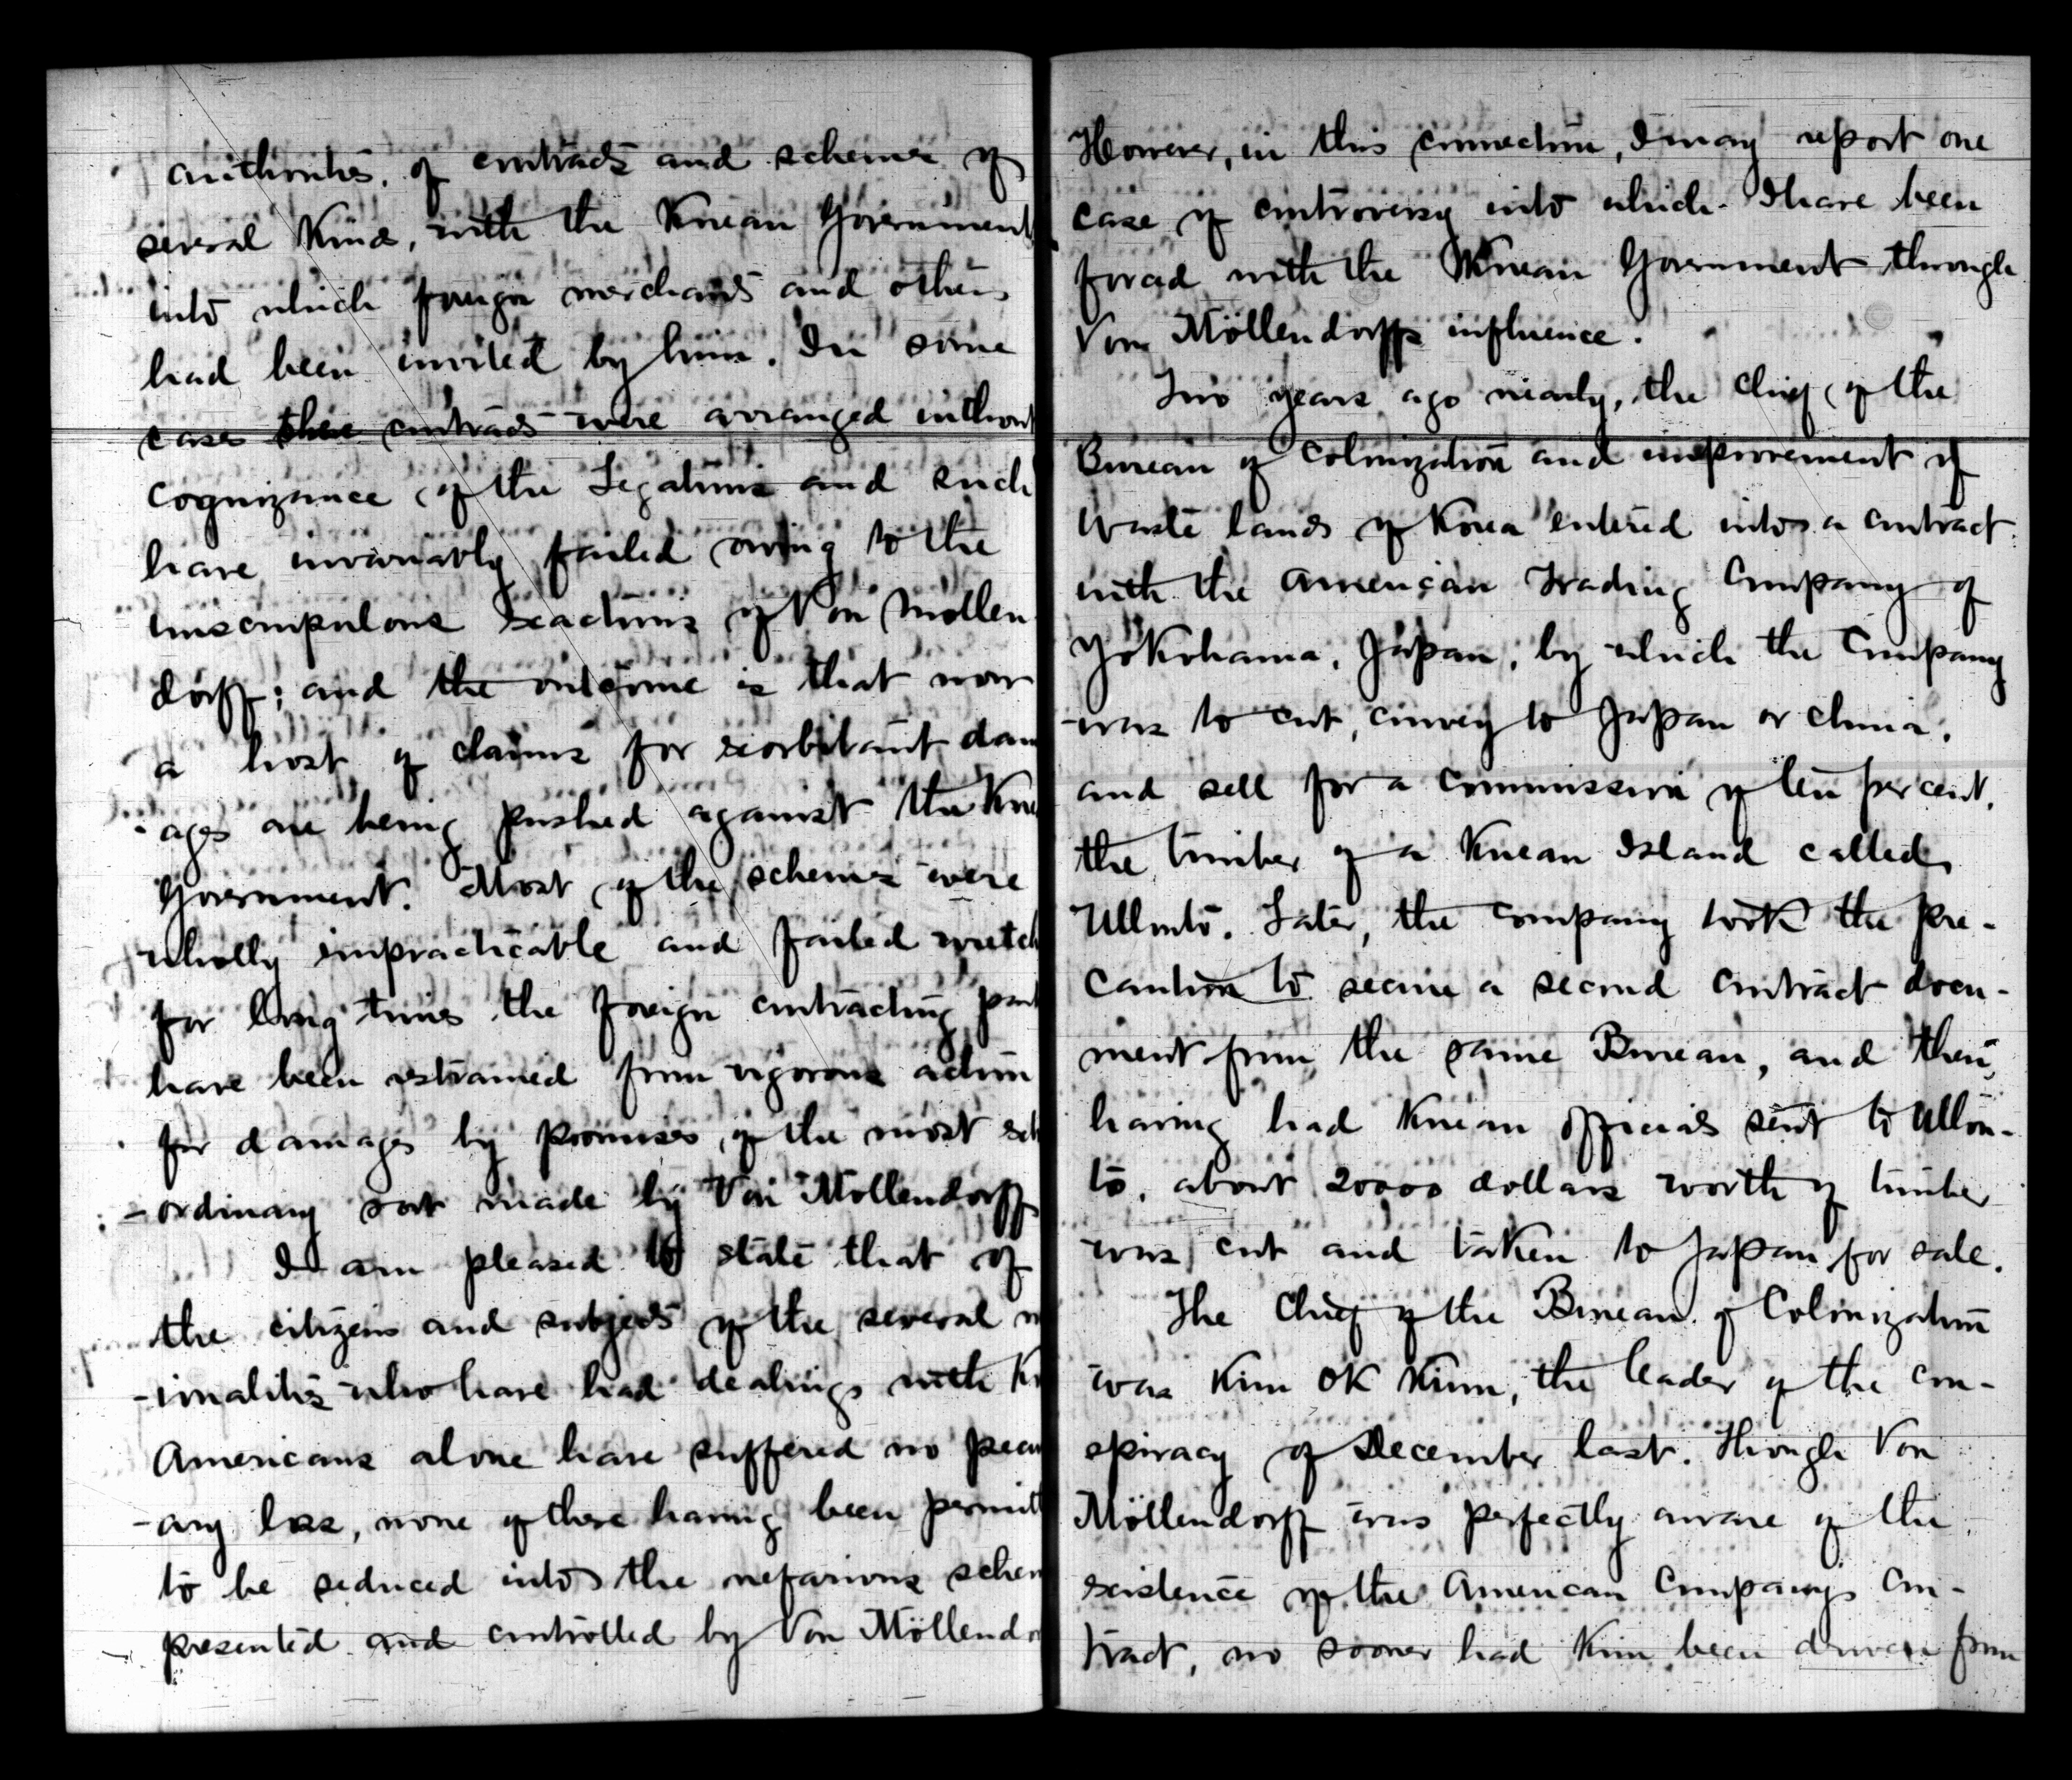 authorities, of contracts and schemes of
several kind, with the Korean Government
into which foreign merchants and others
had been invited by him. In some
cases these contracts were arranged without
cognizance of the Legations and such
have invariably failed owing to the
unscrupulous exactions of Von Mollen
dorff; and the outcome is that now
a host of claims for exorbitant dam
-ages are being pushed against the Kore
Government. Most of the schemes were
wholly impracticable and failed wretch
for long times the foreign contracting part
have been restrained from vigorous action
for damages by promises of the most ext
-ordinary sort made by Von Mollendorff
I am pleased to state that of
the citizens and subjects of the several n
-ionalities who have had dealings with K
Americans alone have suffered no pecu
-ary loss, none of these having been permit
to be seduced into the nefarious schem
presented and controlled by Von Möllendo
However, in this connection, I may report one
case of controversy into which I have been
forced with the Korean Government through
Von Möllendorffs influence.
Two years ago nearly, the Chief of the
Bureau of Colonization and improvement of
Waste lands of Korea entered into a contract
with the American Trading Company of
Yokohama, Japan, by which the Company
was to cut, convey to Japan or China,
and sell for a commission of ten per cent,
the timber of a Korean Island called
Ullonto. Later, the company took the pre-
caution to secure a second contract docu-
ment from the same Bureau, and then,
having had Korean officials sent to Ullon-
to, about 20000 dollars worth of timber
was cut and taken to Japan for sale.
The Chief of the Bureau of Colonization
was Kim OK Kium, the leader of the con-
spiracy of December last. Though Von
Möllendorff was perfectly aware of the
existence of the American Companys con-
tract, no sooner had Kim been driven from